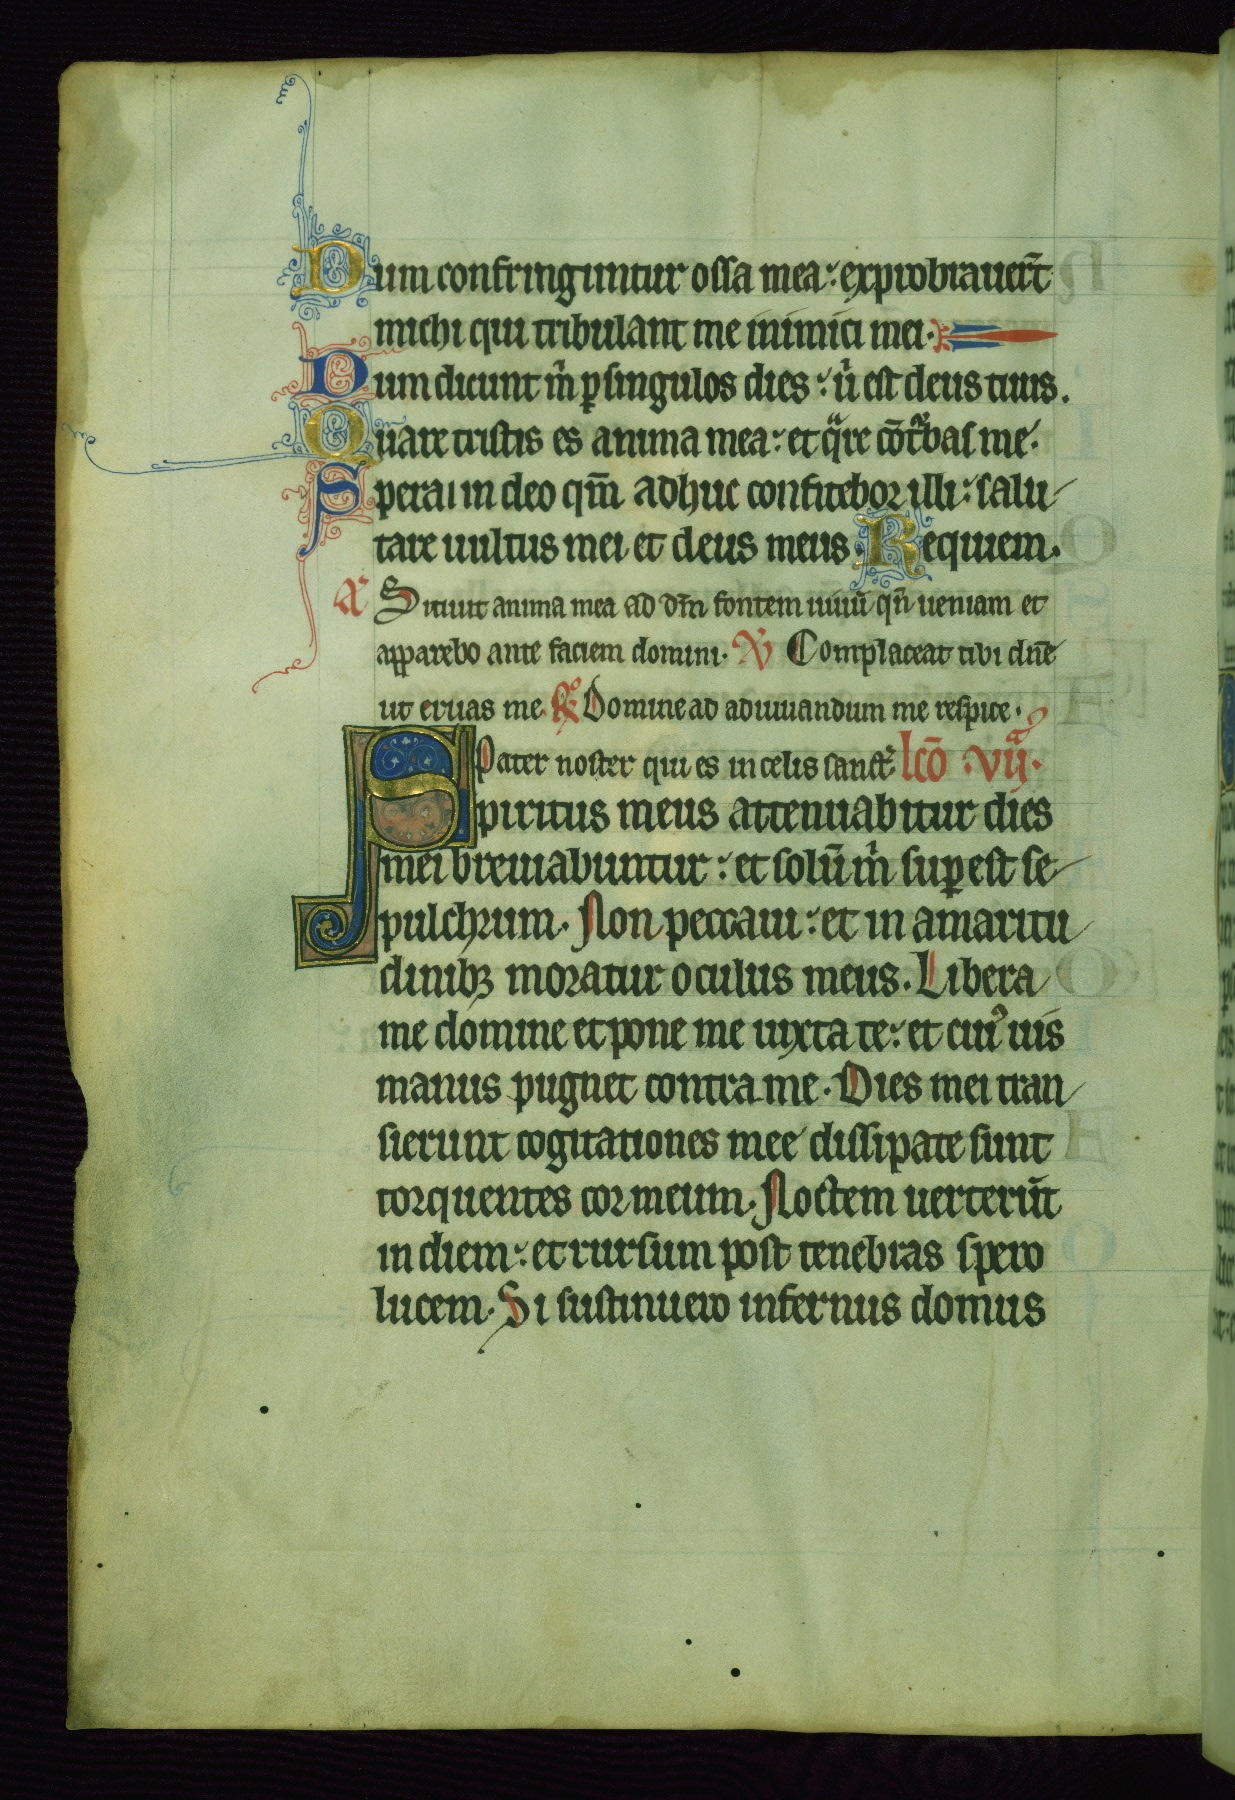 Dum confringuntur ossa mea: exprobrauerūt
michi qui tribulant me inimici mei.
Dum dicunt m̄ ꝑ singulos dies: ubi est deus tuus.
Quare tristis es anima mea: et qͣre cōtͬbas me.
Spera in deo qm̄ adhuc confitebor illi: salu
tare uultus mei et deus meus. Requiem.
A Sitiuit anima mea ad dm̄ fontem uiuū qn̄ ueniam et
apparebo ante faciem domini. V Complaceat tibi dn̄e
ut eruas me. R Domine ad adiuuandum me respice.
Pater noster qui es in celis sanct̄. lcō vijᵃ.
Spiritus meus attenuabitur dies
mei breuiabuntur: et solū m̄ suꝑest se
pulchrum. Non peccaui: et in amaritu
dinibꝫ moratur oculus meus. Libera
me domine et pone me iuxta te: et cuiꝰ uis
manus pugnet contra me. Dies mei tran
sierunt cogitationes mee dissipate sunt
torquentes cor meum. Noctem uerterūt
in diem: et rursum post tenebras spero
lucem. Si sustinuero infernus domus